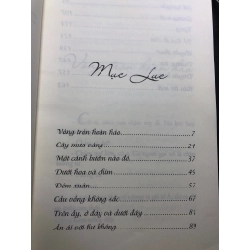 Mục Lục
Vầng trăn hoàn hảo 7
Cây mưa vàng 21
Một cánh bướm nào đó 37
Dưới hoa và dúm 45
Đêm xuân 57
Cầu vồng không sắc 67
Trên ấy, ở đây và dưới đáy 81
Ân ái với hư không 89